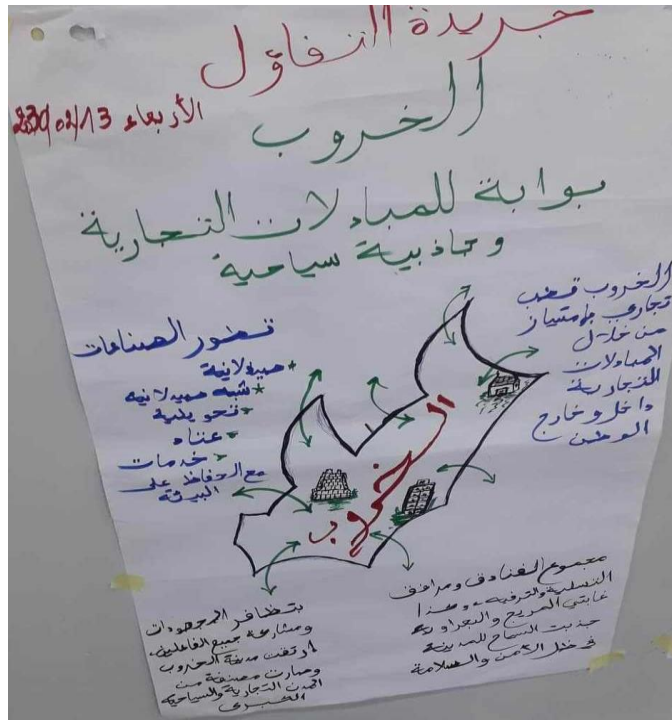 جريدة التفاؤل
الأربعاء 13/02/2030
الخروب
بوابة للمبادلات التجارية
وجاذبية سياحية
الخروب قطب
تجاري بإمتياز
من خلال
المبادلات
التجارية
داخل وخارج
الوطن
تطور الصناعات
* صيدلانية
* شبه صيدلانية
* تحويلية
* خدمات
مع الحفاظ على
البيئة
الخروب
مجموع الفنادق ومرافق
التسلية والترفيه وهذا
غابتي المريج والبعراوية
جذبت السياح للمدينة
في ظل الأمن والسلامة
بتظافر المجهودات
ومشاركة جميع الفاعلين
ارتقت مدينة الخروب
وصارت مصنفة من
المدن التجارية والسياحية
الكبرى